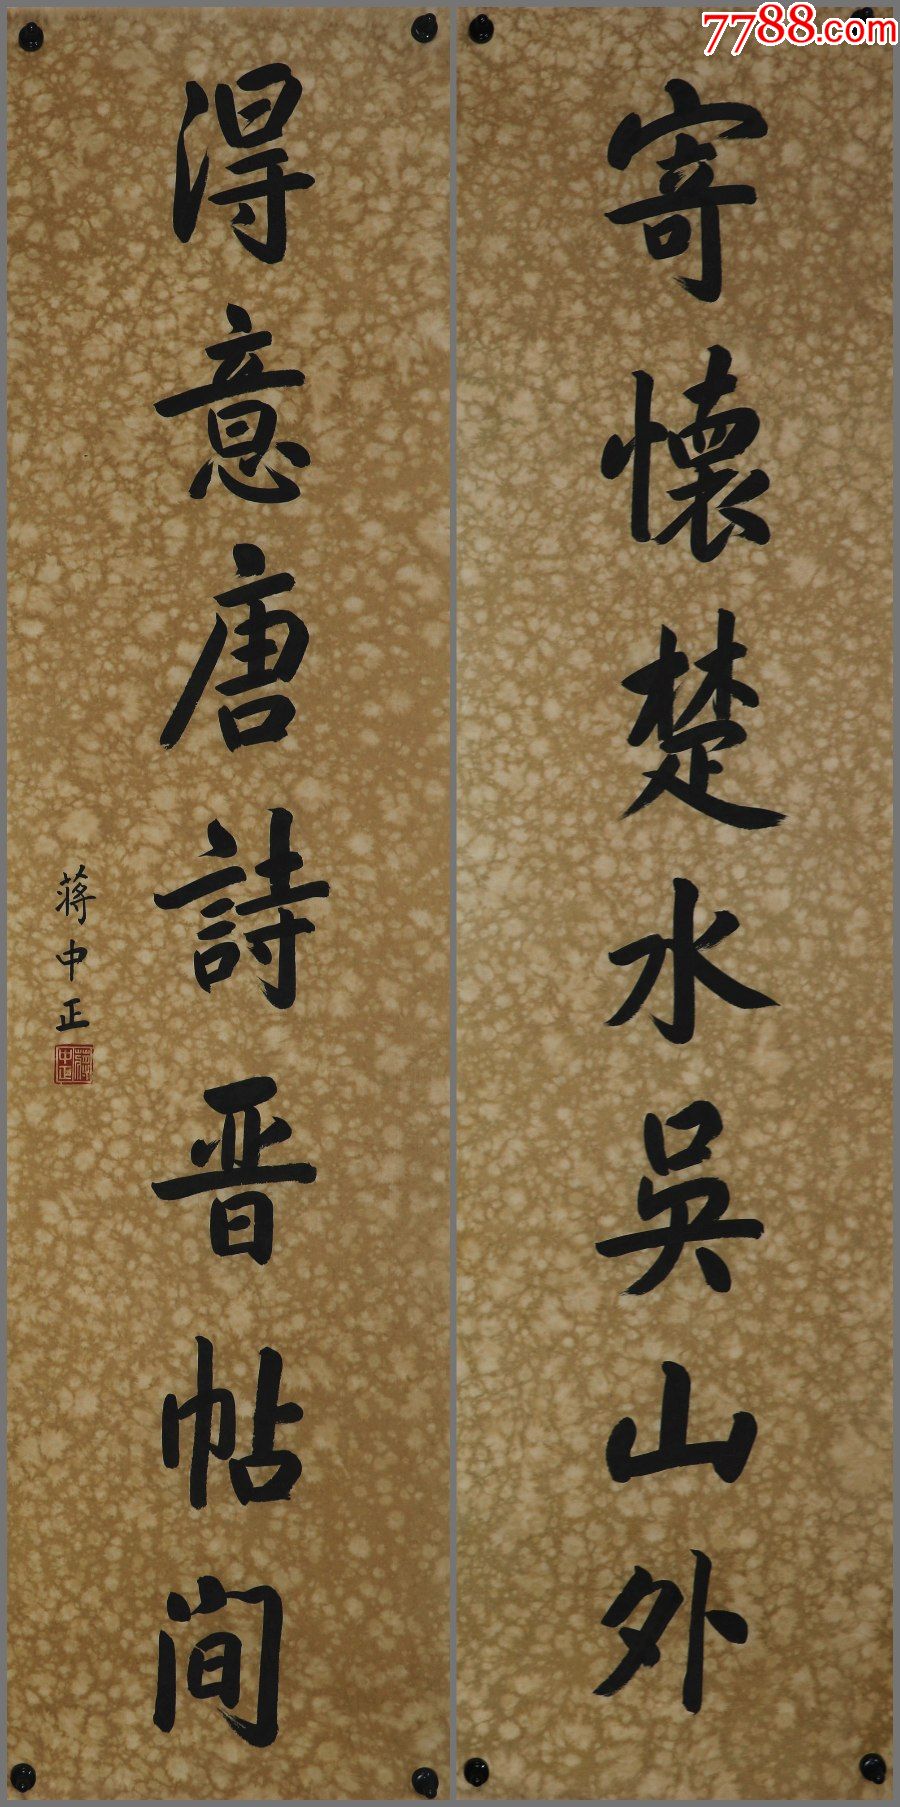 7788.com
寄懷楚水吳山外
得意唐詩晋帖间
蒋中正
蒋中正